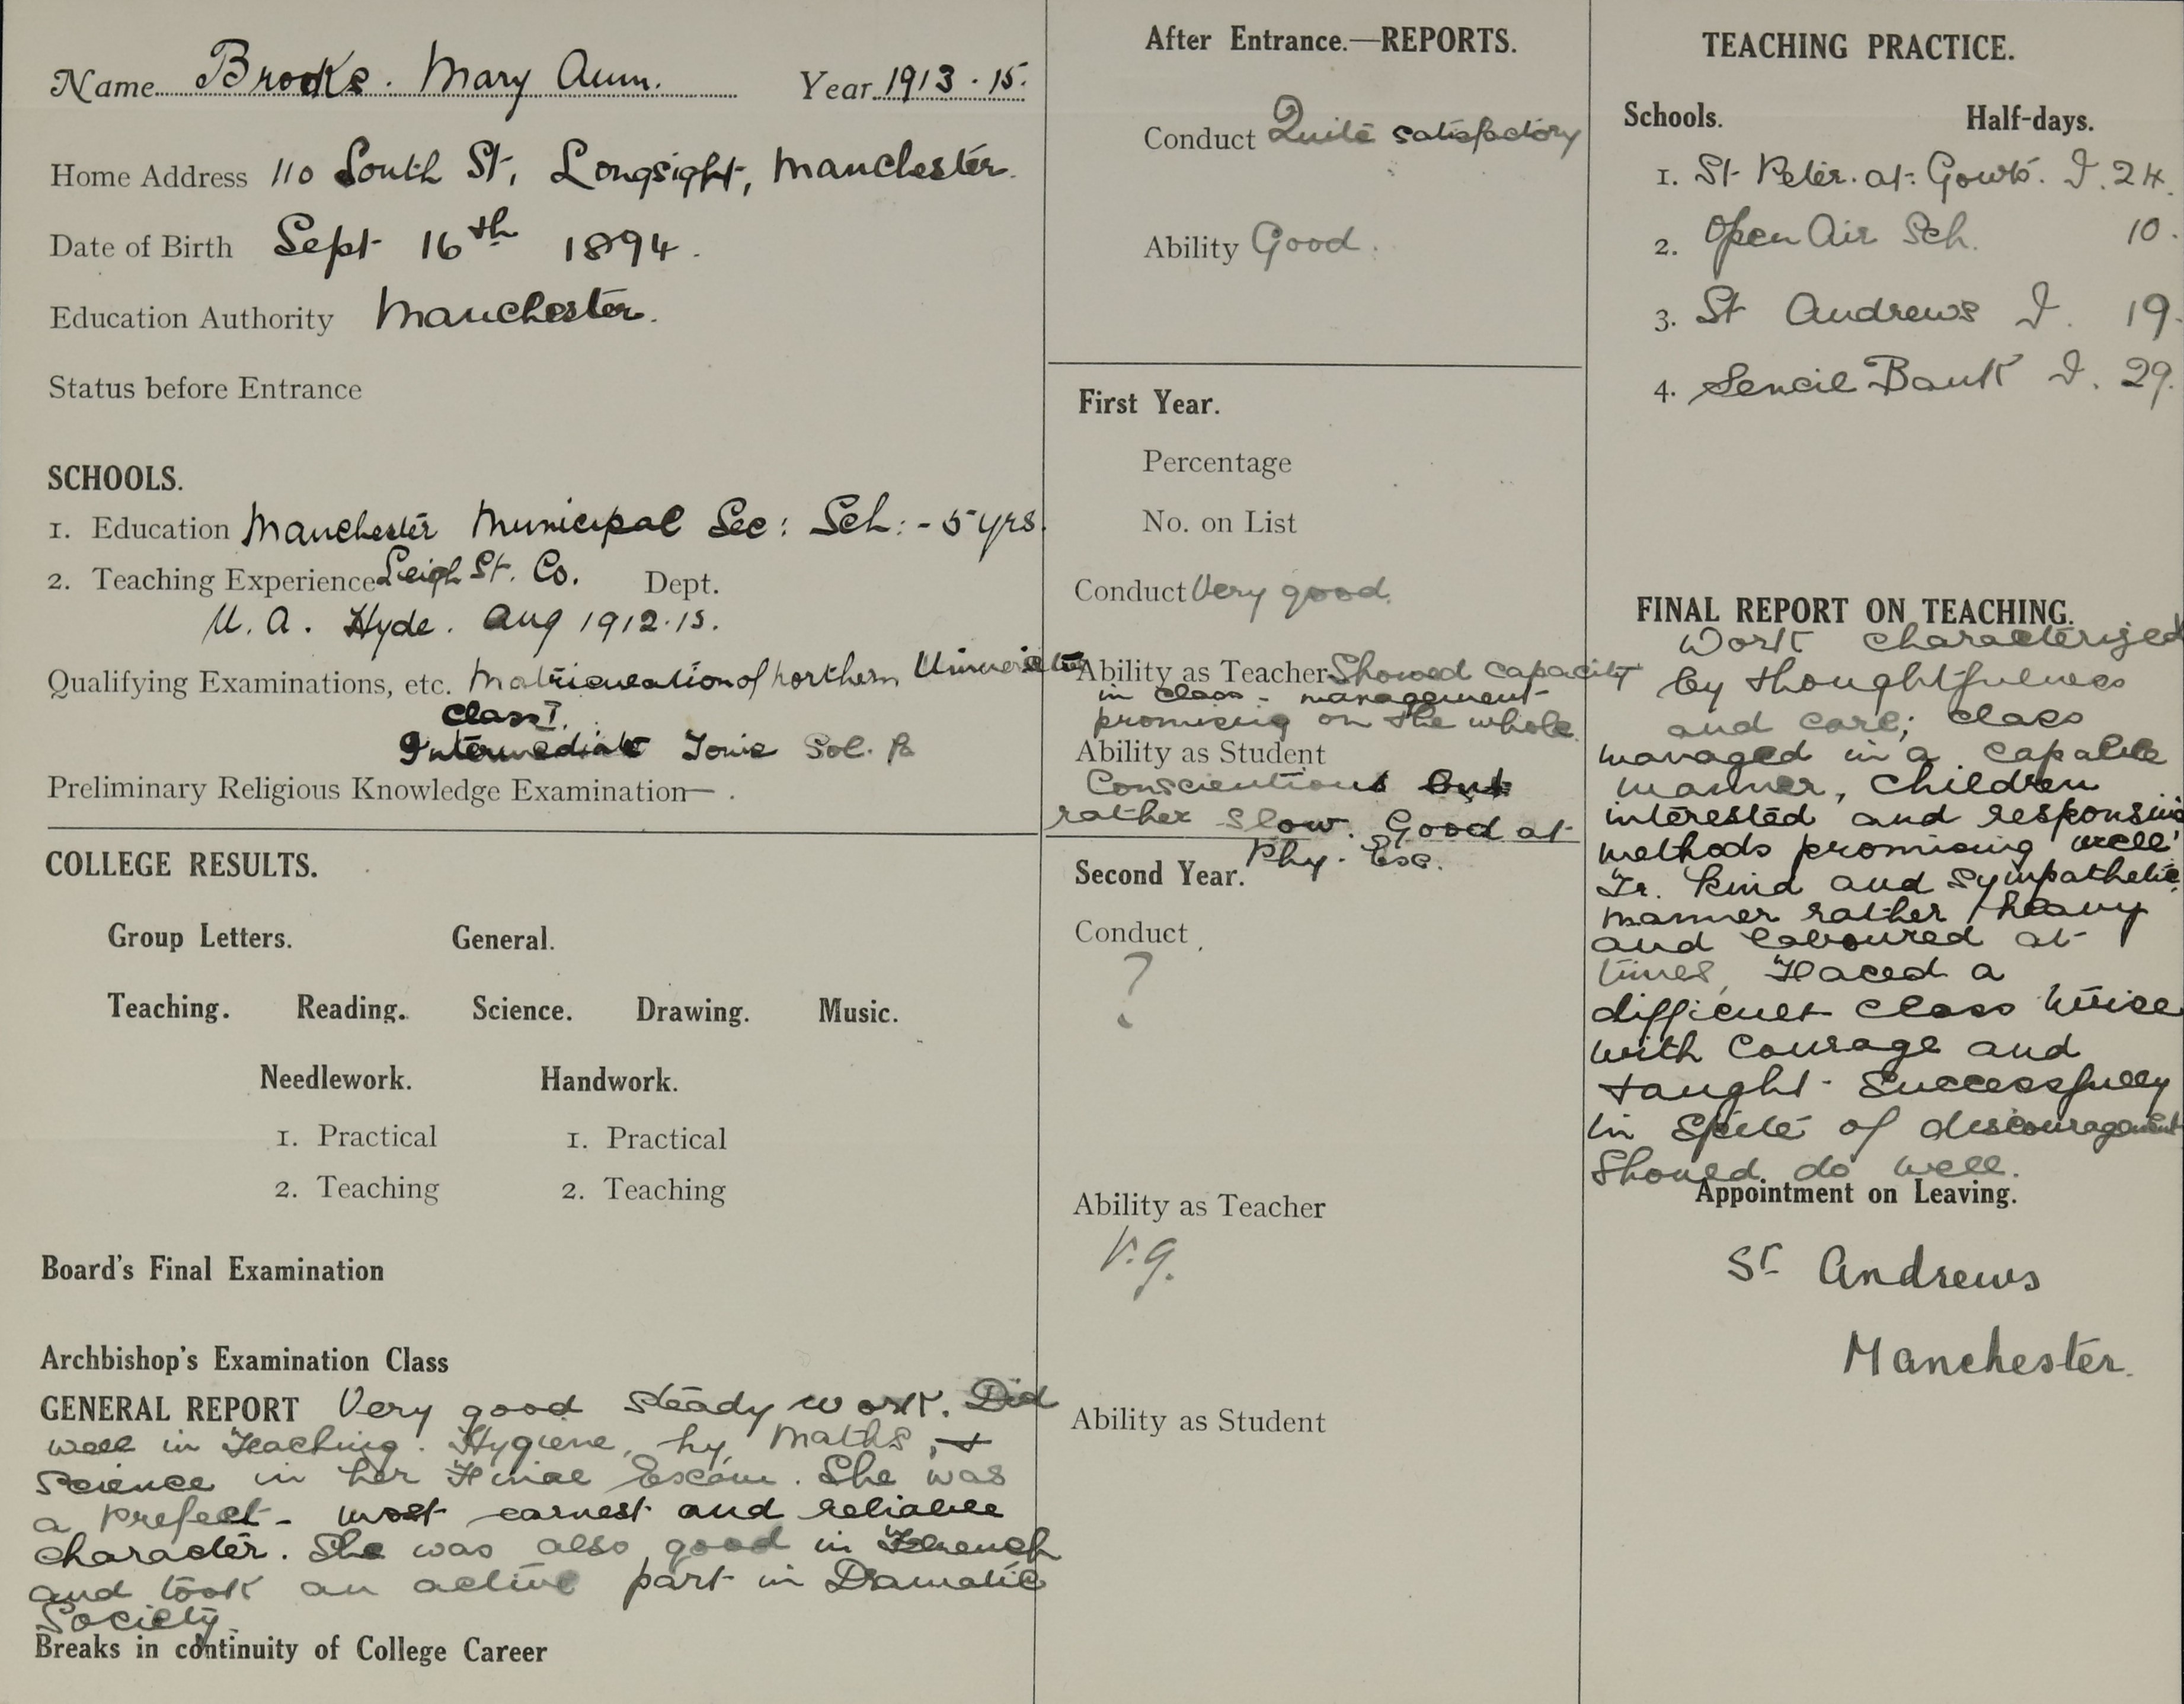 Name Brooks. Mary Ann. Year 1913.15.
Home Address 110 South St, Longsight, Manchester.
Date of Birth Sept 16th 1894.
Education Authority Manchester.
Status before Entrance
SCHOOLS.
1. Education Manchester Municipal Sec: Sch: - 5 yrs.
2. Teaching Experience Leigh St. Co. Dept.
U. A. Hyde. Aug 1912.13.
Qualifying Examinations, etc. Matriculation of Northern Universities
Class I.
Intermediate Tonic Sol. fa
Preliminary Religious Knowledge Examination — .
COLLEGE RESULTS.
Group Letters. General.
Teaching. Reading. Science. Drawing. Music.
Needlework. Handwork.
1. Practical 1. Practical
2. Teaching 2. Teaching
Board's Final Examination
Archbishop's Examination Class
GENERAL REPORT Very good steady work. Did
well in Teaching. Hygiene, hy, Maths, +
Science in her Final Exam. She was
a prefect - most earnest and reliable
character. She was also good in French
and took an active part in Dramatic
Society.
Breaks in continuity of College Career
After Entrance.—REPORTS.
Conduct Quite satisfactory
Ability Good.
First Year.
Percentage
No. on List
Conduct Very good.
Ability as Teacher Showed capacity
in class - management
promising on the whole.
Ability as Student
Conscientious but
rather slow. Good at
Phy. Exc.
Second Year.
Conduct
?
Ability as Teacher
V.g.
Ability as Student
TEACHING PRACTICE.
Schools. Half-days.
1. St Peter. at. Gowts. I. 24.
2. Open Air Sch. 10.
3. St Andrews I. 19.
4. Sencil Bank I. 29.
FINAL REPORT ON TEACHING.
Work characterized
by thoughtfulness
and care; class
managed in a capable
manner, children
interested and responsive
methods promising well'
Tr. kind and sympathetic,
manner rather heavy
and laboured at
times, Faced a
difficult class twice
with courage and
taught successfully
in spite of discouragement
Should do well.
Appointment on Leaving.
St Andrews
Manchester.